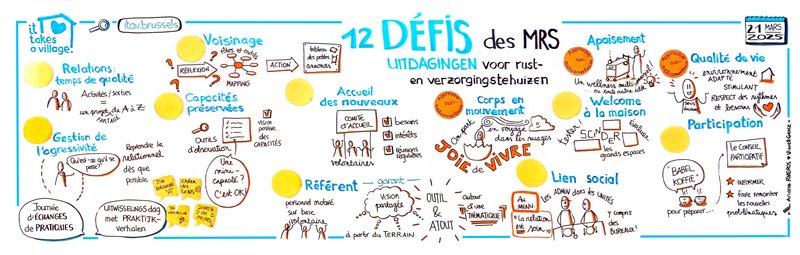 it
takes
a village!
itav.brussels
12 DÉFIS des MRS
UITDAGINGEN voor rust-
en verzorgingstehuizen
21 MARS
2025
Relations:
temps de qualité
Activités / sorties
=
un projet de A à Z
Voisinage
rôles et outils
RÉFLEXION
MAPPING
ACTION
tableau
des petites
annonces
Capacités
préservées
OUTILS
d'observation
vision
positive
des
CAPACITÉS
Une
mini-
capacité ?
C'est OK!
Gestion de
l'agressivité
Qu'est-ce qui se
passe?
Reprendre le
relationnel
dès que
possible
Journée
d'ÉCHANGES
de PRATIQUES
UITWISSELINGS dag
met PRAKTIJK-
verhalen
Accueil
des nouveaux
COMITÉ
D'ACCUEIL
volontaires
besoins
intérêts
réunions
régulières
Référent
personnel motivé
sur base
volontaire
garant
VISION
partagée
à partir du TERRAIN
OUTIL
& ATOUT
autour
d'une
THÉMATIQUE
Corps en
mouvement
Approche
non
On part
en voyage
dans les nuages
JOIE de VIVRE
Apaisement
Approche
non
Un wellness
Welcome
à la maison
SCINDER
les grands
espaces
Lien social
AU
MENU
"La relation
est soin"
les ADMIN dans les UNITÉS
y compris
des
BUREAUX!
Qualité de vie
Approche
non
environnement
ADAPTÉ
STIMULANT
RESPECT des rythmes
et besoins
Participation
"BABEL
KOFFIE"
pour préparer...
Le CONSEIL
PARTICIPATIF
INFORMER
Faire remonter
les nouvelles
problématiques